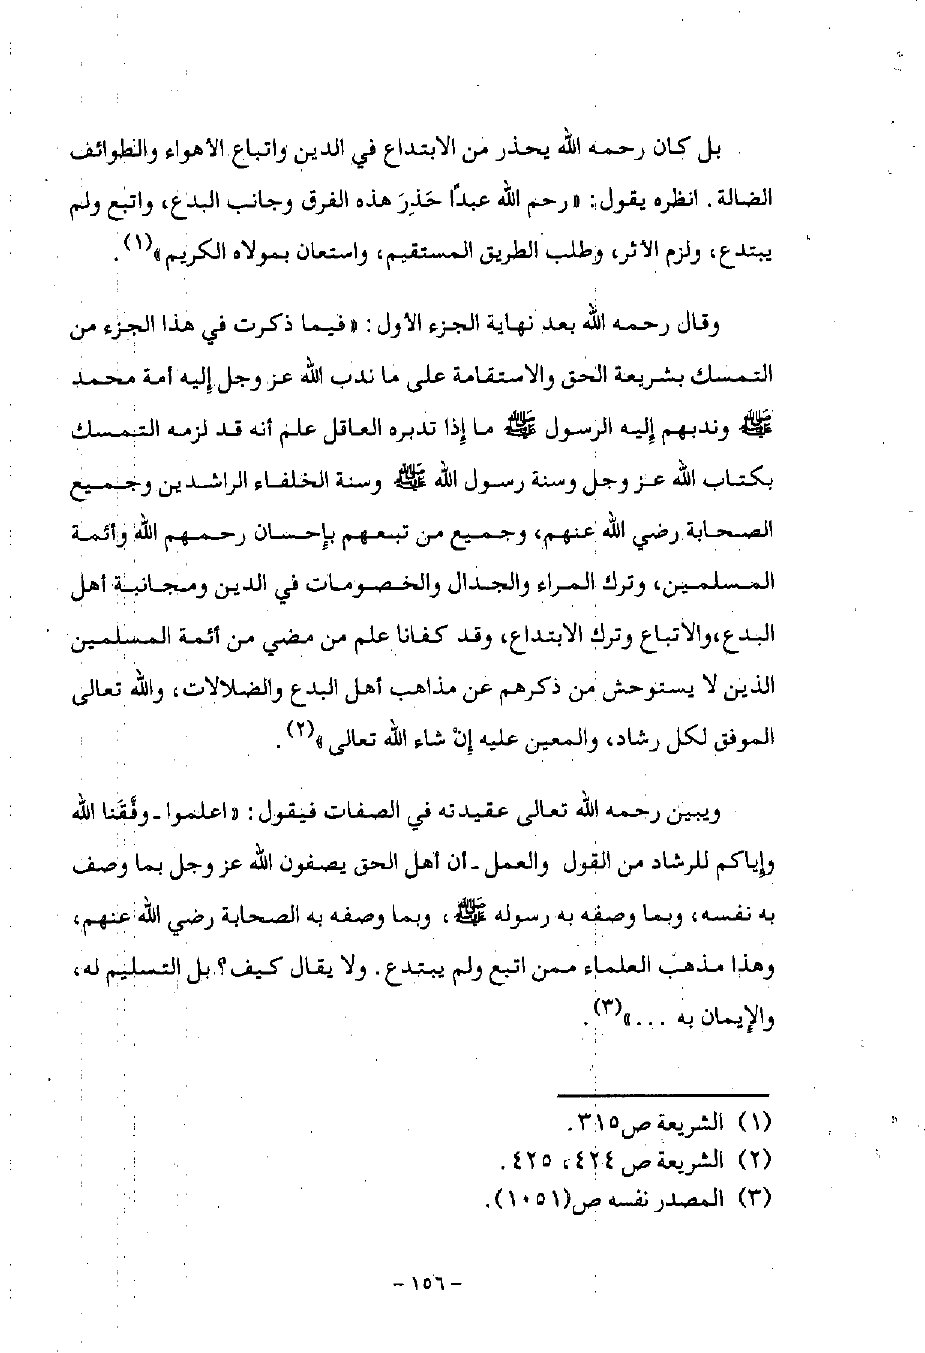 بل كان رحمه الله يحذر من الابتداع في الدين واتباع الأهواء والطوائف
الضالة. انظره يقول: «رحم الله عبدًا حَذِرَ هذه الفرق وجانب البدع، واتبع ولم
يبتدع، ولزم الأثر، وطلب الطريق المستقيم، واستعان بمولاه الكريم»(١).
وقال رحمه الله بعد نهاية الجزء الأول: «فيما ذكرت في هذا الجزء من
التمسك بشريعة الحق والاستقامة على ما ندب الله عز وجل إليه أمة محمد
ﷺ وندبهم إليه الرسول ﷺ ما إذا تدبره العاقل علم أنه قد لزمه التمسك
بكتاب الله عز وجل وسنة رسول الله ﷺ وسنة الخلفاء الراشدين وجميع
الصحابة رضي الله عنهم، وجميع من تبعهم بإحسان رحمهم الله وأئمة
المسلمين، وترك المراء والجدال والخصومات في الدين ومجانبة أهل
البدع،والاتباع وترك الابتداع، وقد كفانا علم من مضي من أئمة المسلمين
الذين لا يستوحش من ذكرهم عن مذاهب أهل البدع والضلالات، والله تعالى
الموفق لكل رشاد، والمعين عليه إنْ شاء الله تعالى»(٢).
ويبين رحمه الله تعالى عقيدته في الصفات فيقول: «اعلموا - وفَّقَنا الله
وإياكم للرشاد من القول والعمل - أن أهل الحق يصفون الله عز وجل بما وصف
به نفسه، وبما وصفه به رسوله ﷺ، وبما وصفه به الصحابة رضي الله عنهم،
وهذا مذهب العلماء ممن اتبع ولم يبتدع. ولا يقال كيف؟ بل التسليم له،
والإيمان به ...»(٣).
(١) الشريعة ص٣١٥.
(٢) الشريعة ص ٤٢٤، ٤٢٥.
(٣) المصدر نفسه ص(١٠٥١).
- ١٥٦ -